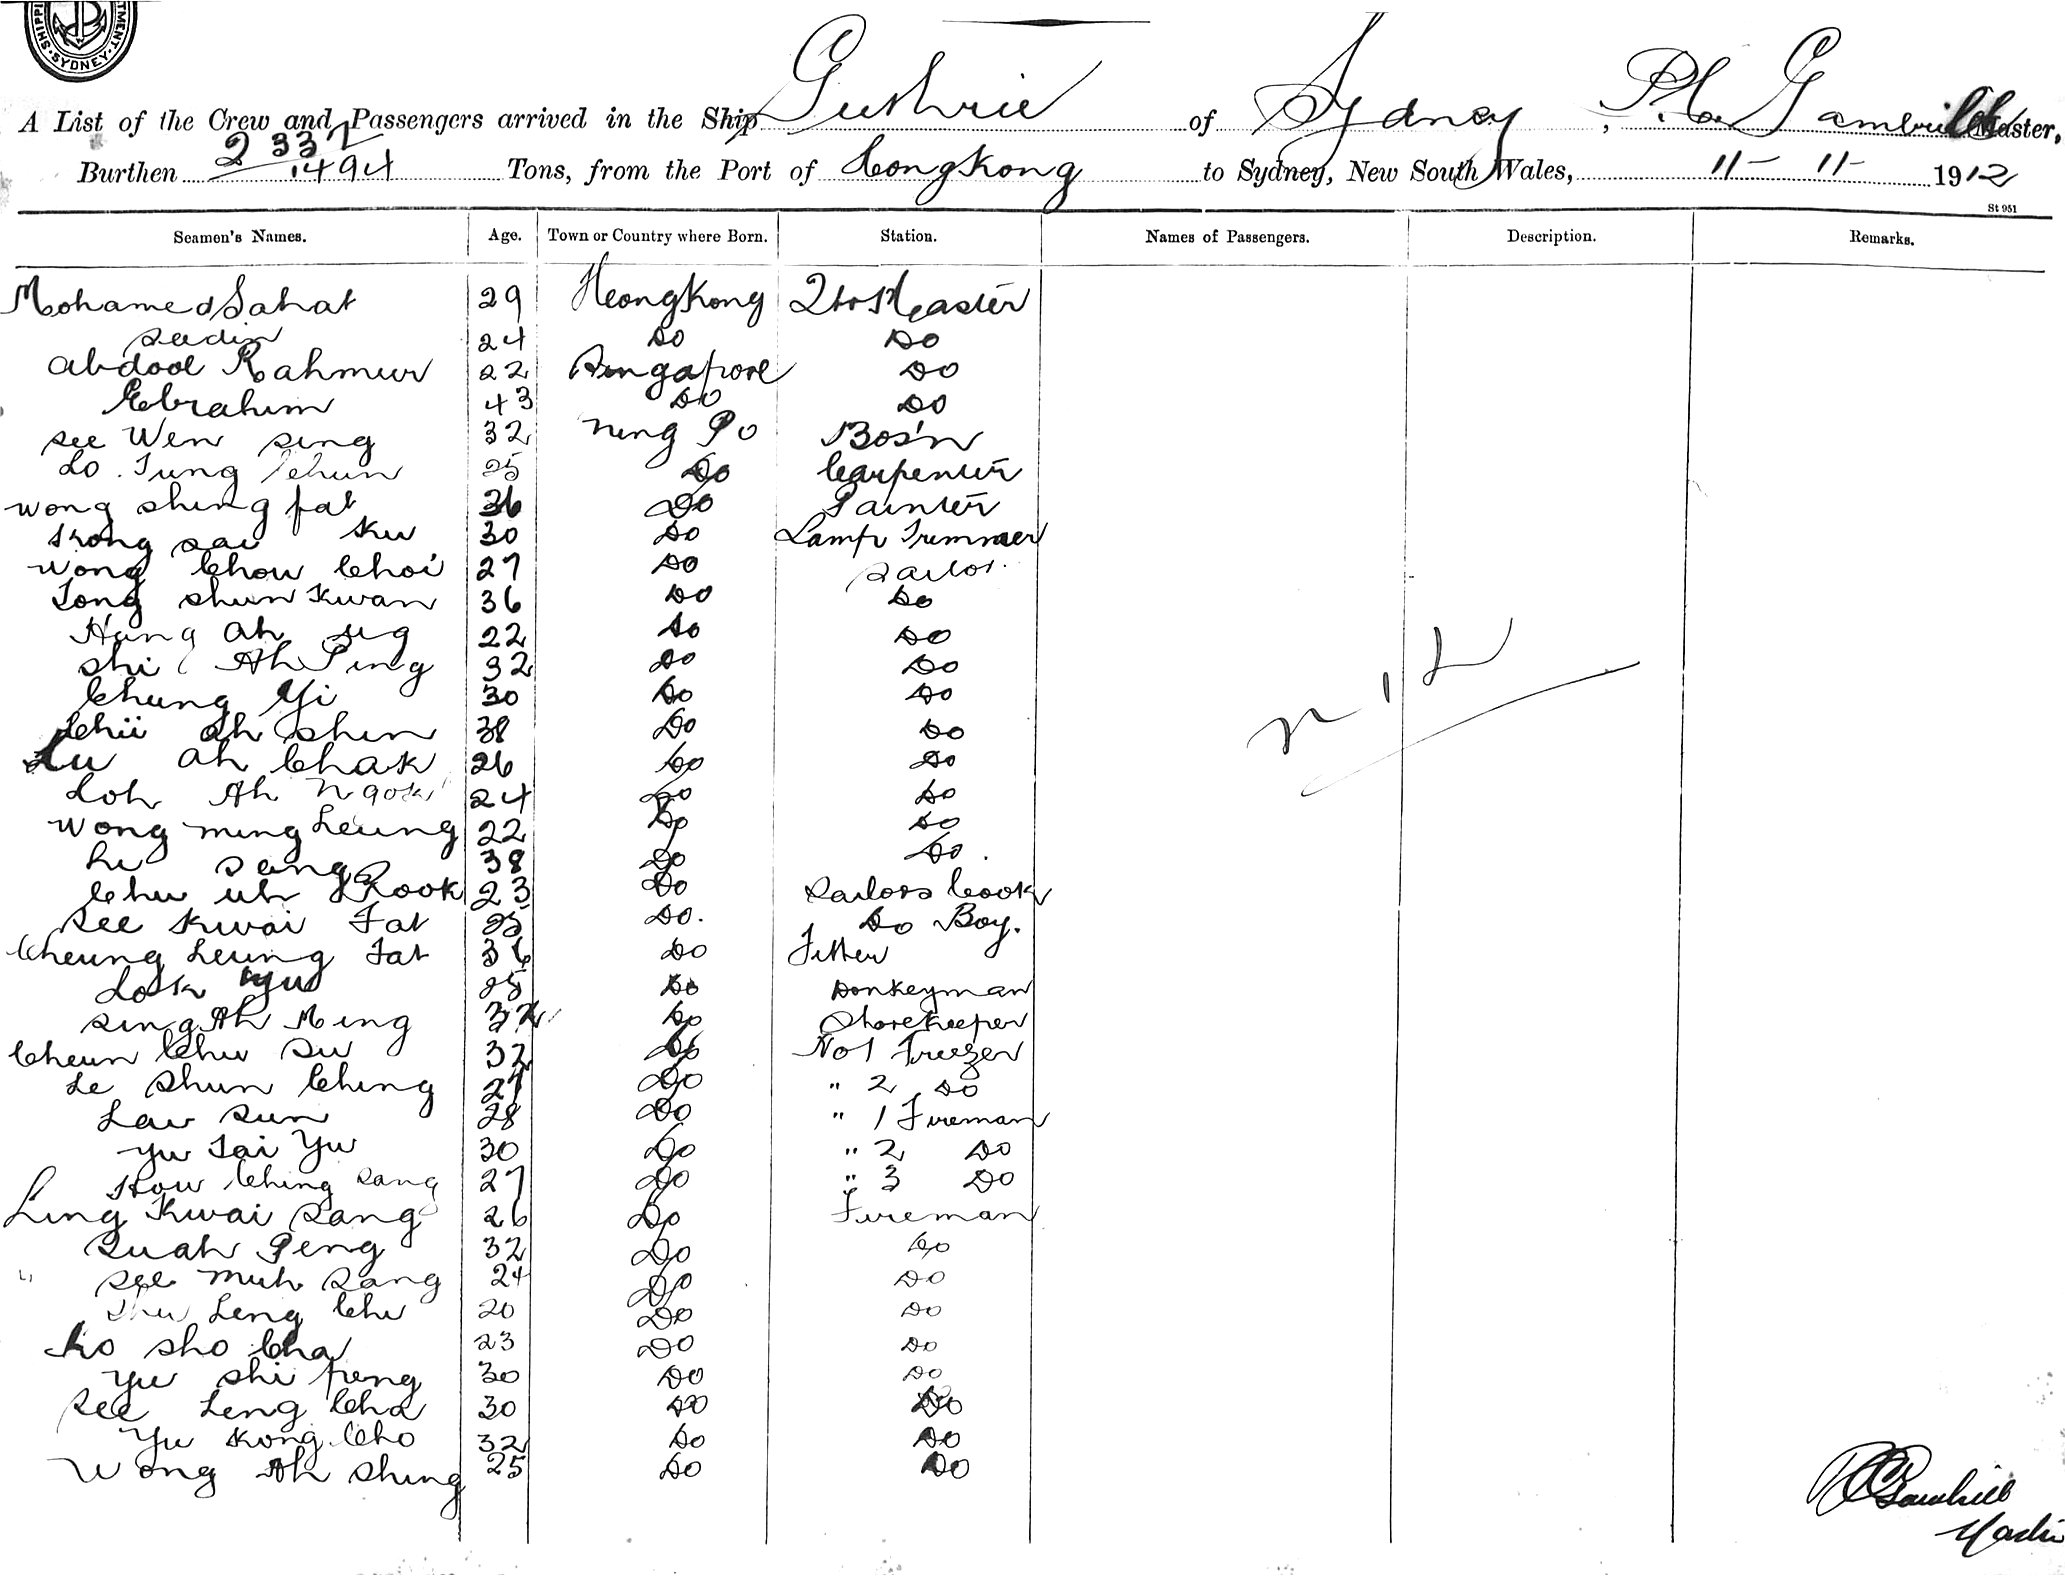 SHIPPI
TMENT.
SYDNEY
A List of the Crew and Passengers arrived in the Ship Guthrie of Sydney, Gambrill Master,
Burthen 2337 1494 Tons, from the Port of Hongkong to Sydney, New South Wales, 11 - 11 - 1912
St 951
Seamen's Names. Age. Town or Country where Born. Station. Names of Passengers. Description. Remarks.
Mohamed Sahat 29 Hongkong Qtr Master
Seedin 24 Do Do
Abdool Rahmun 22 Singapore Do
Ebrahim 43 Do Do
See Wen Sing 32 Ning Po Bos'n
Lo Tung Chun 25 Do Carpenter
Wong Shing Fat 36 Do Painter
Kong Sai Ku 30 Do Lamp Trimmer
Wong Chow Choi 27 Do Sailor
Tong Shun Kwan 36 Do Do
Hung Ah 22 Do Do
Shi Ah Ping 32 Do Do
Chung Yi 30 Do Do
Chii Ah Shin 38 Do Do
Lu Ah Chak 26 Do Do
Loh Ah Ngok 24 Do Do
Wong Ming Leung 22 Do Do
Lu Sang 38 Do Do
Chu Uh Kook 23 Do Sailors Cook
See Kwai Fat 25 Do. Do Boy.
Cheung Leung Fat 36 Do Fitter
Lok Yu 25 Do Donkeyman
Sing Ah Ming 32 Do Storekeeper
Cheun Chu Su 32 Do No 1 Freezer
Le Shun Ching 27 Do " 2 Do
Law Sun 28 Do " 1 Fireman
Yu Tai Yu 30 Do " 2 Do
Kow Ching Sang 27 Do " 3 Do
Ling Kwai Sang 26 Do Fireman
Suah Peng 32 Do Do
" See Muh Sang 24 Do Do
Leng Chi 20 Do Do
Ko Sho Cha 23 Do Do
Yu Shi Peng 30 Do Do
See Leng Cha 30 Do Do
Yu Kong Cho 32 Do Do
Wong Ah Shing 25 Do Do
NIL
Gambrill
Master